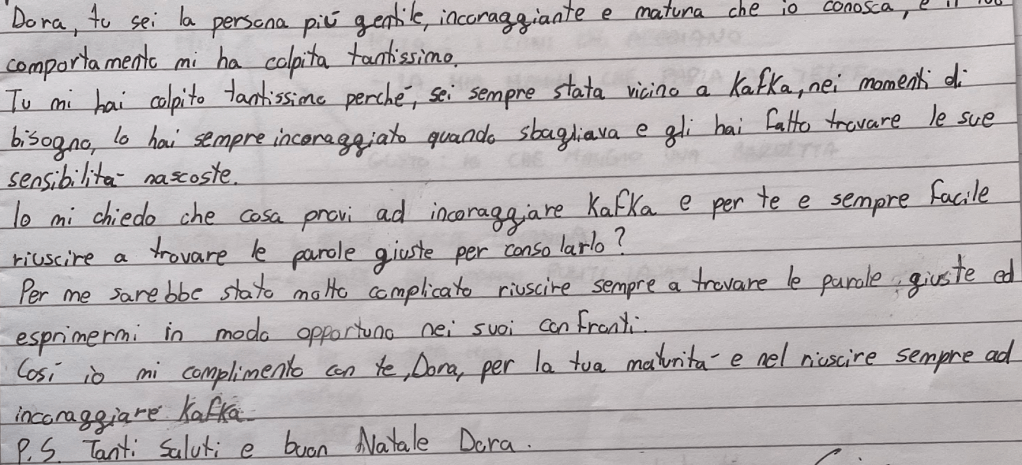 Dora, tu sei la persona più gentile, incoraggiante e matura che io conosca, e il tuo
comportamento mi ha colpita tantissimo.
Tu mi hai colpito tantissimo perché, sei sempre stata vicino a Kafka, nei momenti di
bisogno, lo hai sempre incoraggiato quando sbagliava e gli hai fatto trovare le sue
sensibilità nascoste.
Io mi chiedo che cosa provi ad incoraggiare Kafka e per te e sempre facile
riuscire a trovare le parole giuste per consolarlo?
Per me sarebbe stato molto complicato riuscire sempre a trovare le parole giuste ed
esprimermi in modo opportuno nei suoi confronti.
Così io mi complimento con te, Dora, per la tua maturità e nel riuscire sempre ad
incoraggiare Kafka.
P.S. Tanti saluti e buon Natale Dora.